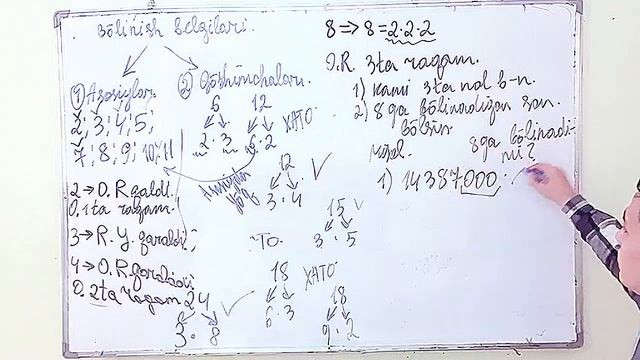 Bölinish belgilari.
① Asosiylar
2; 3; 4; 5;
7; 8; 9; 10; 11
2 → O.R qaldi.
O. 1 ta raqam.
3 → R.Y. qaraldi;
4 → O.R qaraladi
O. 2ta raqam
② Qöshimchalari.
6 12
2 · 3 6 · 2 XATO.
Asosiydan yöq
12
3 · 4
15
"TO. 3 · 5
18 XATO.
6 · 3
18
9 · 2
24
3 · 8
8 => 8 = 2·2·2
O.R. 3ta raqam.
1) kami 3ta nol b-n.
2) 8 ga bölinadigan son
bölsin
Misol. 8ga bölinadi-
mi?
1) 14387,000.